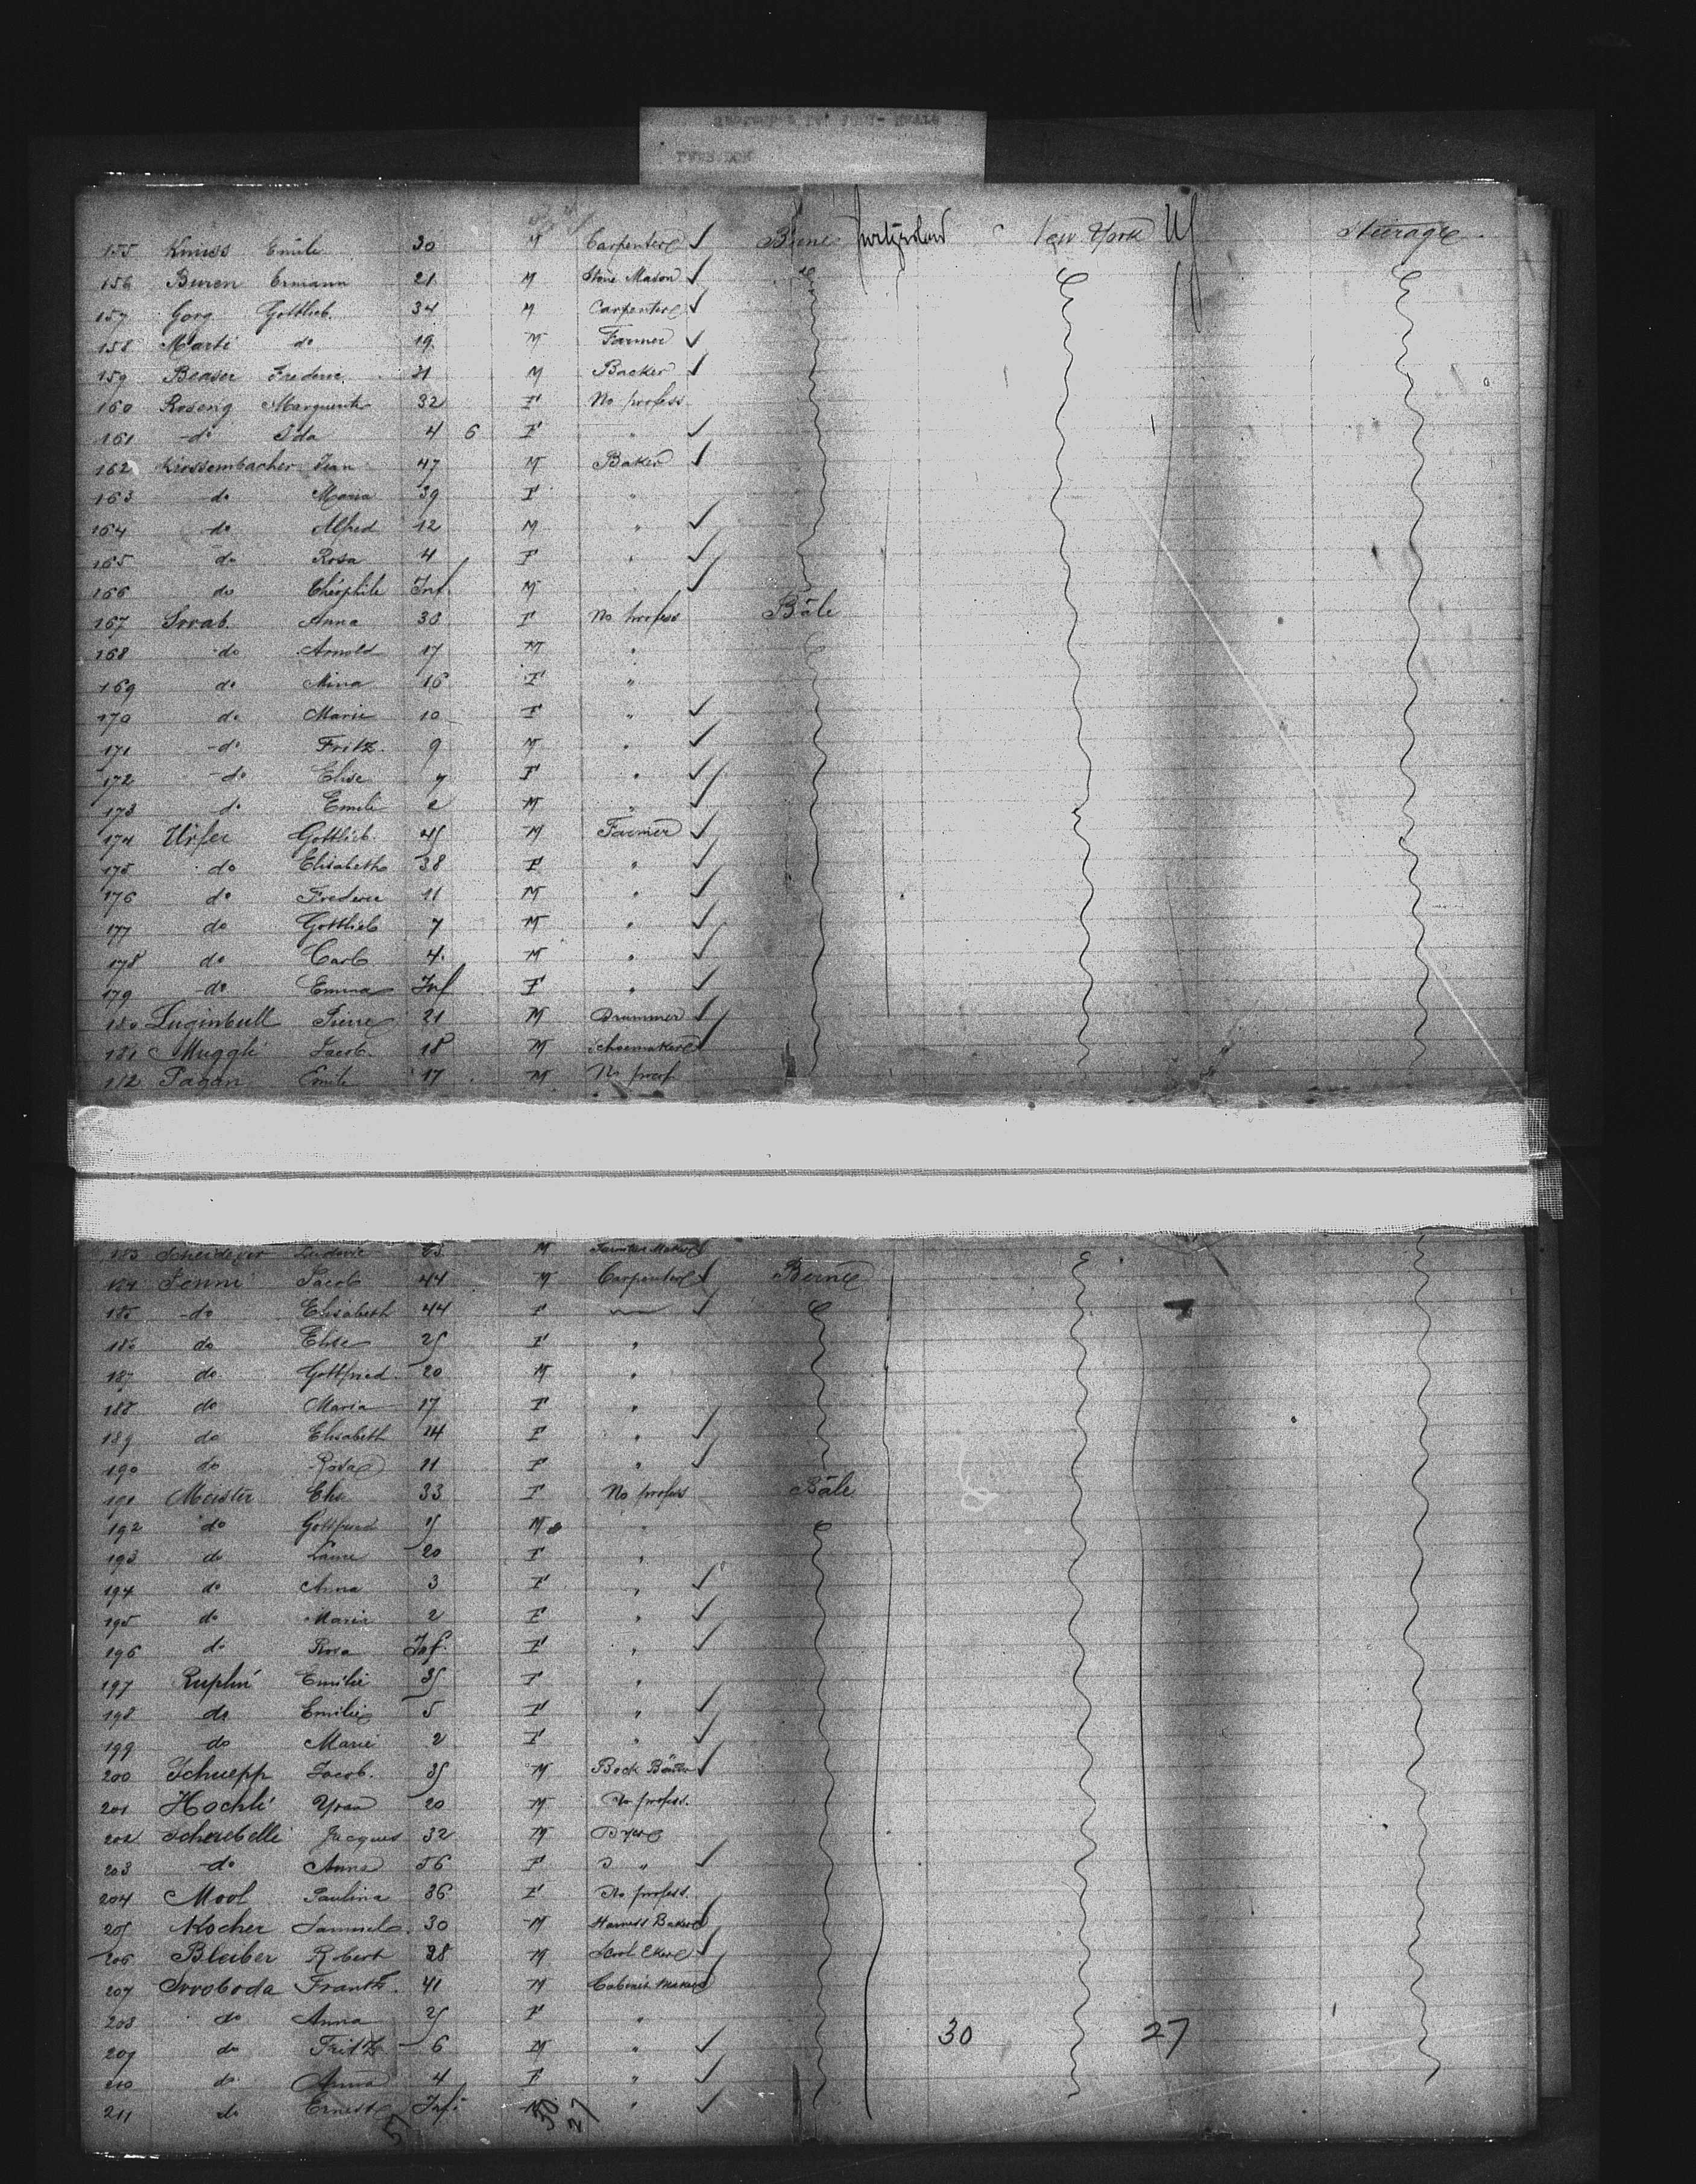 155 Kniess Emile 30 M Carpenter ✓ Berne Switzerland New York Steerage
156 Buren Ermann 21 M Stone Mason ✓
157 Gorg Gottlieb. 34 M Carpenter ✓
158 Marti do 19 M Farmer ✓
159 Beaser Frederic 21 M Backer ✓
160 Roseng Marguerite 32 F No profess.
161 do Ida 4 6 F " ✓
162 Kirssembacher Jean 47 M Baker ✓
163 do Maria 39 F "
164 do Alfred 12 M " ✓
165 do Rosa 4 F " ✓
166 do Théophile Inf. M ✓
167 Srrab. Anna 30 F No profess Bâle
168 do Arnold 17 M "
169 do Mina 16 F "
170 do Marie 10 F " ✓
171 do Fritz. 9 M " ✓
172 do Elise 7 F " ✓
173 do Emile 2 M " ✓
174 Urfer Gottlieb. 45 M Farmer ✓
175 do Elisabeth 38 F " ✓
176 do Frederic 11 M " ✓
177 do Gottlieb 7 M " ✓
178 do Carl 4. M " ✓
179 do Emma Inf F " ✓
180 Luginbull Pierre 21 M Drummer ✓
181 Muggli Jacob. 18 M Schoemaker ✓
182 Pagan Emile 17 M No prof.
183 Scheideger Ludovic M
184 Jenni Jacob 44 M Carpenter ✓ Berne
185 do Elisabeth 44 F ✓
186 do Elise 25 F "
187 do Gottfried 20 M "
188 do Maria 17 F "
189 do Elisabeth 14 F " ✓
190 do Rosa 11 F " ✓
191 Meister Elise 33 F No profess Bâle
192 do Gottfried M "
193 do Laure 20 F "
194 do Anna 3 F " ✓
195 do Maria 2 F " ✓
196 do Rosa Inf. F " ✓
197 Ruplin Emilie 35 F "
198 do Emilie 5 F " ✓
199 do Marie 2 F " ✓
200 Schuepp Jacob. 35 M ✓
201 Hochli Yvan 20 M No profess.
202 Scheubelli Jacques 32 M Dyer
203 do Anna 56 F " ✓
204 Mool Paulina 36 F No profess.
205 Kocher Samuel 30 M Harness Baker ✓
206 Bleiber Robert 28 M ✓
207 Svoboda Frantz. 41 M Cabinet Maker ✓
208 do Anna 25 F "
209 do Fritz 6 M " ✓ 30 27
210 do Anna 4 F " ✓
211 do Ernest Inf. M " ✓
30
27